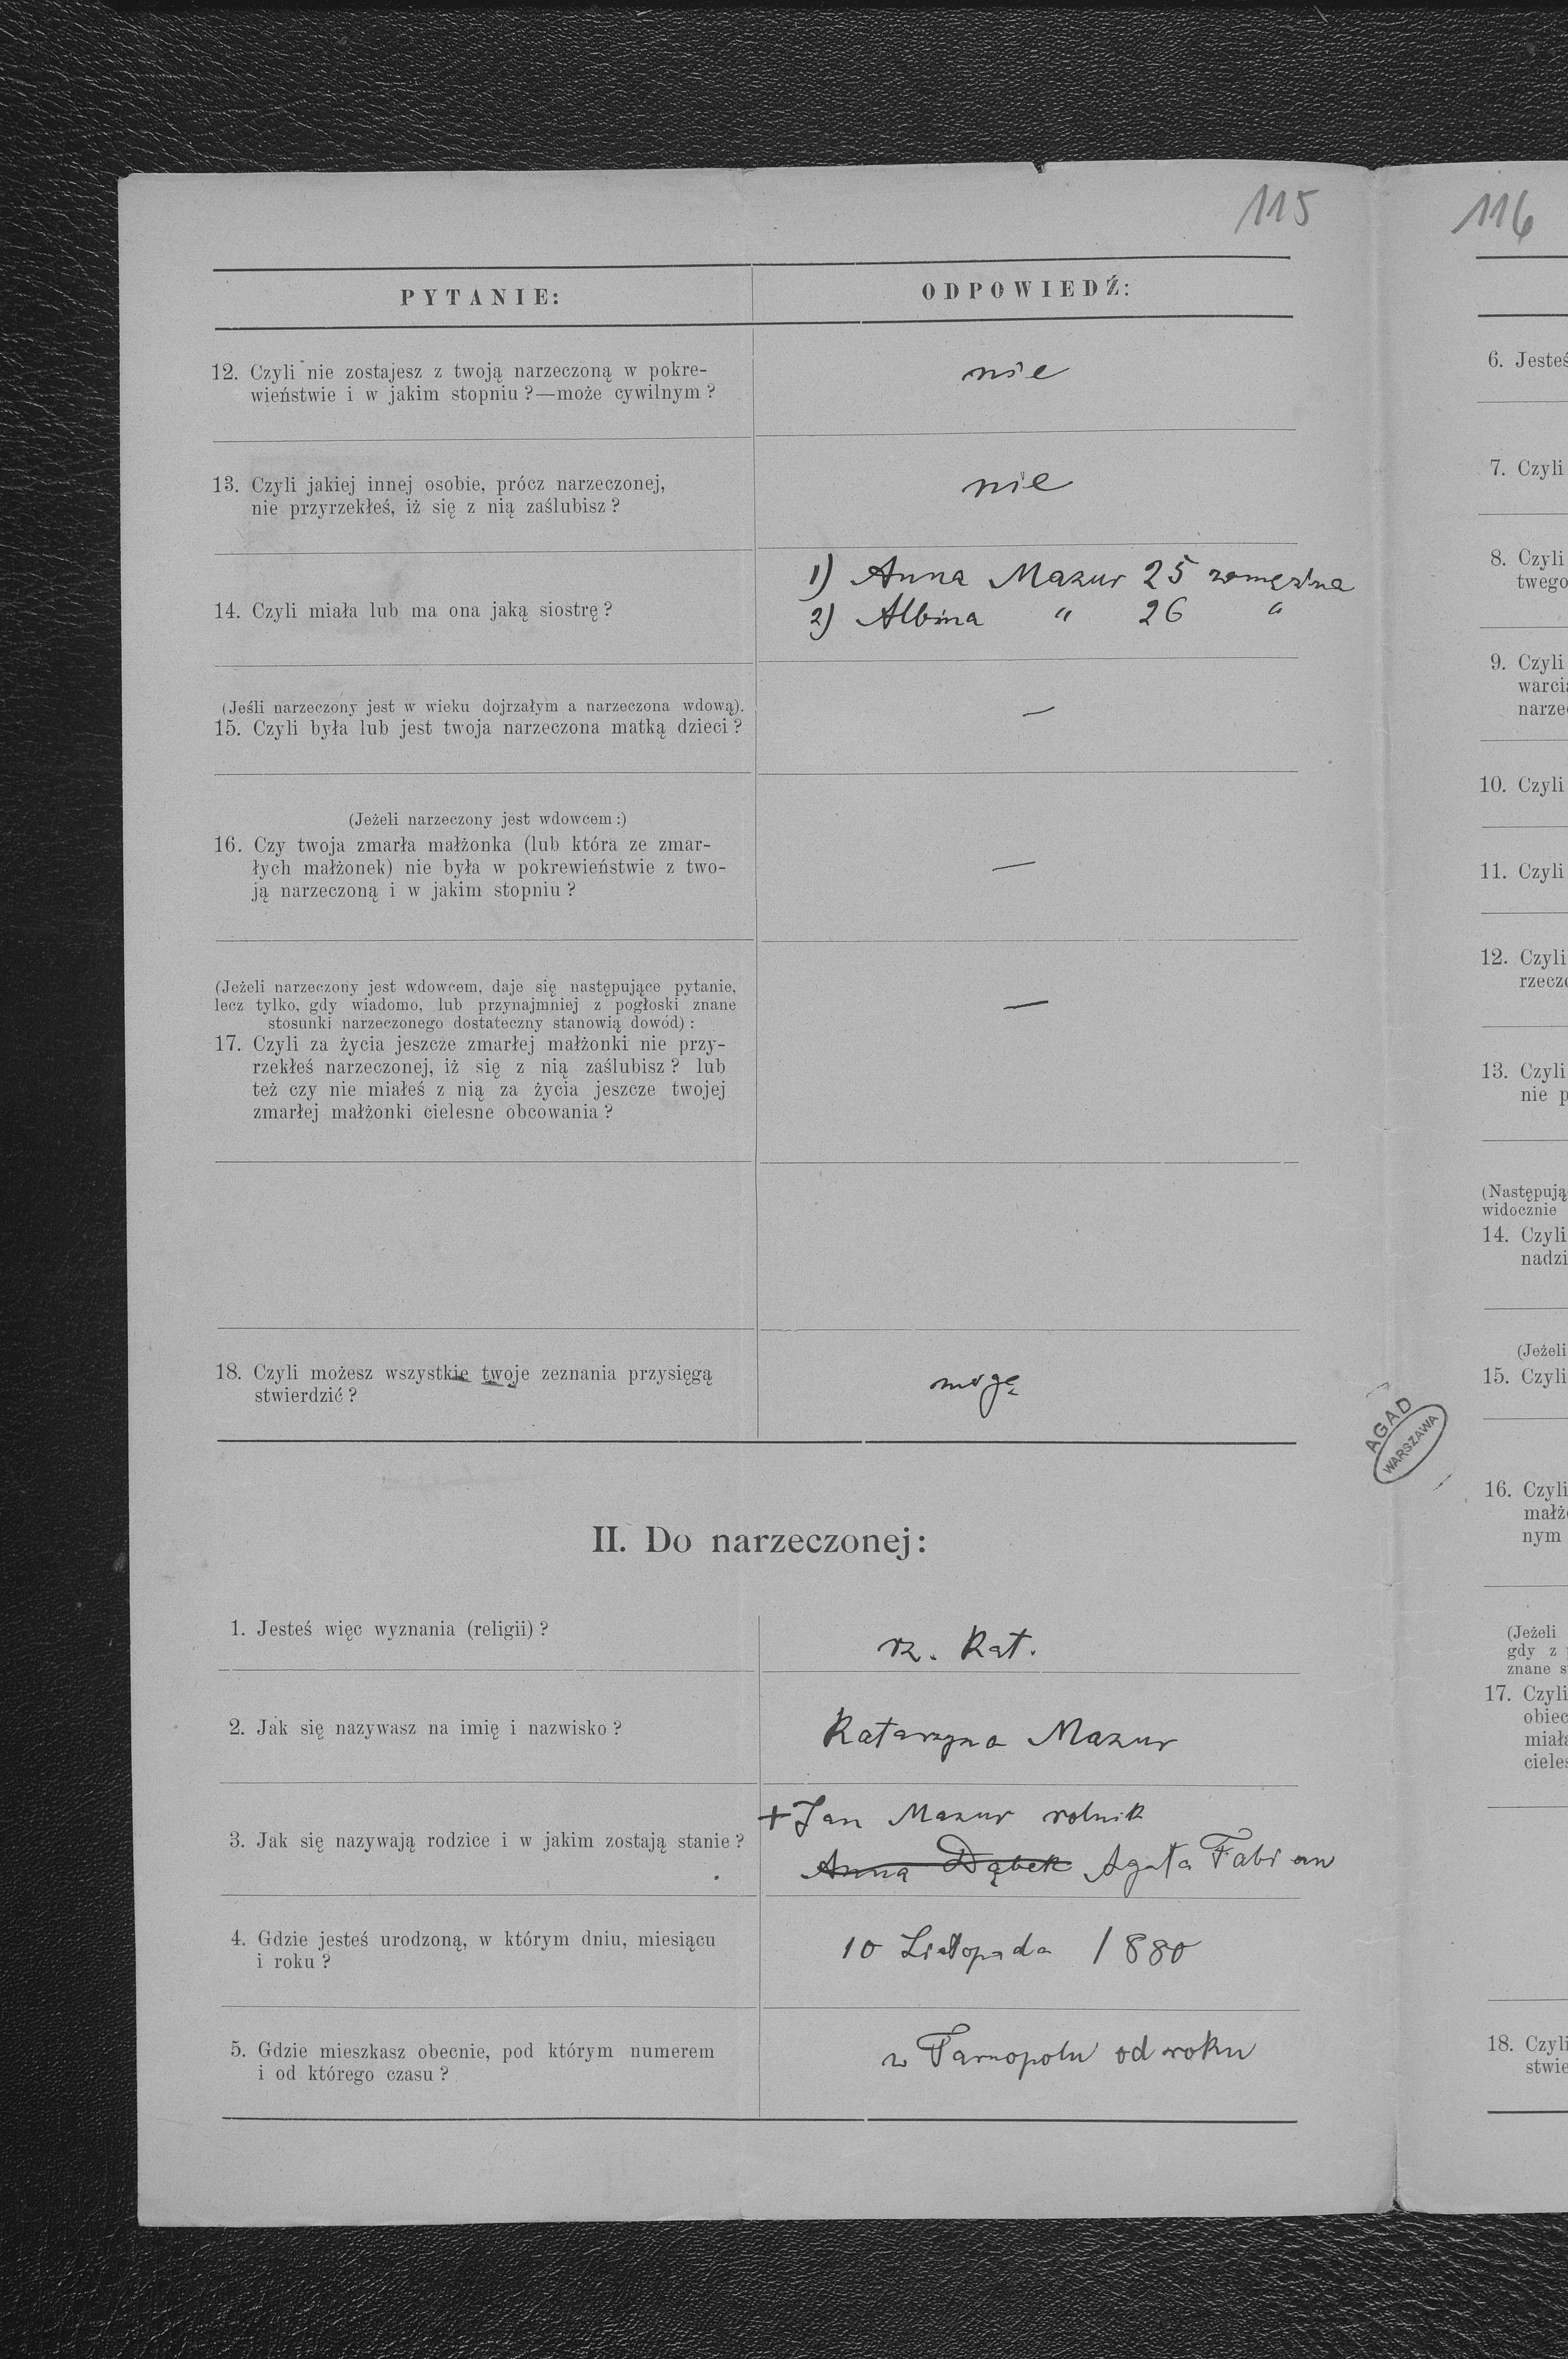 115
PYTANIE:
ODPOWIEDŹ:
12. Czyli nie zostajesz z twoją narzeczoną w pokre-
wieństwie i w jakim stopniu ?—może cywilnym ?
nie
13. Czyli jakiej innej osobie, prócz narzeczonej,
nie przyrzekłeś, iż się z nią zaślubisz ?
nie
14. Czyli miała lub ma ona jaką siostrę ?
1) Anna Mazur 25 zamężna
2) Albina " 26 "
(Jeśli narzeczony jest w wieku dojrzałym a narzeczona wdową).
15. Czyli była lub jest twoja narzeczona matką dzieci ?
—
(Jeżeli narzeczony jest wdowcem :)
16. Czy twoja zmarła małżonka (lub która ze zmar-
łych małżonek) nie była w pokrewieństwie z two-
ją narzeczoną i w jakim stopniu ?
—
(Jeżeli narzeczony jest wdowcem, daje się następujące pytanie,
lecz tylko, gdy wiadomo, lub przynajmniej z pogłoski znane
stosunki narzeczonego dostateczny stanowią dowód) :
17. Czyli za życia jeszcze zmarłej małżonki nie przy-
rzekłeś narzeczonej, iż się z nią zaślubisz ? lub
też czy nie miałeś z nią za życia jeszcze twojej
zmarłej małżonki cielesne obcowania ?
—
18. Czyli możesz wszystkie twoje zeznania przysięgą
stwierdzić ?
mogę
II. Do narzeczonej:
1. Jesteś więc wyznania (religii) ?
rz. Kat.
2. Jak się nazywasz na imię i nazwisko ?
Katarzyna Mazur
3. Jak się nazywają rodzice i w jakim zostają stanie ?
+ Jan Mazur rolnik
Anna Dąbek Agata Fabian
4. Gdzie jesteś urodzoną, w którym dniu, miesiącu
i roku ?
10 Listopada 1880
5. Gdzie mieszkasz obecnie, pod którym numerem
i od którego czasu ?
w Tarnopolu od roku
AGAD
WARSZAWA
116
6. Jesteś
7. Czyli
8. Czyli
twego
9. Czyli
warcia
narze
10. Czyli
11. Czyli
12. Czyli
rzecz
13. Czyli
nie p
(Następują
widocznie
14. Czyli
nadzi
(Jeżeli
15. Czyli
16. Czyli
małż
nym
(Jeżeli
gdy z
znane s
17. Czyli
obiec
miała
cieles
18. Czyli
stwie